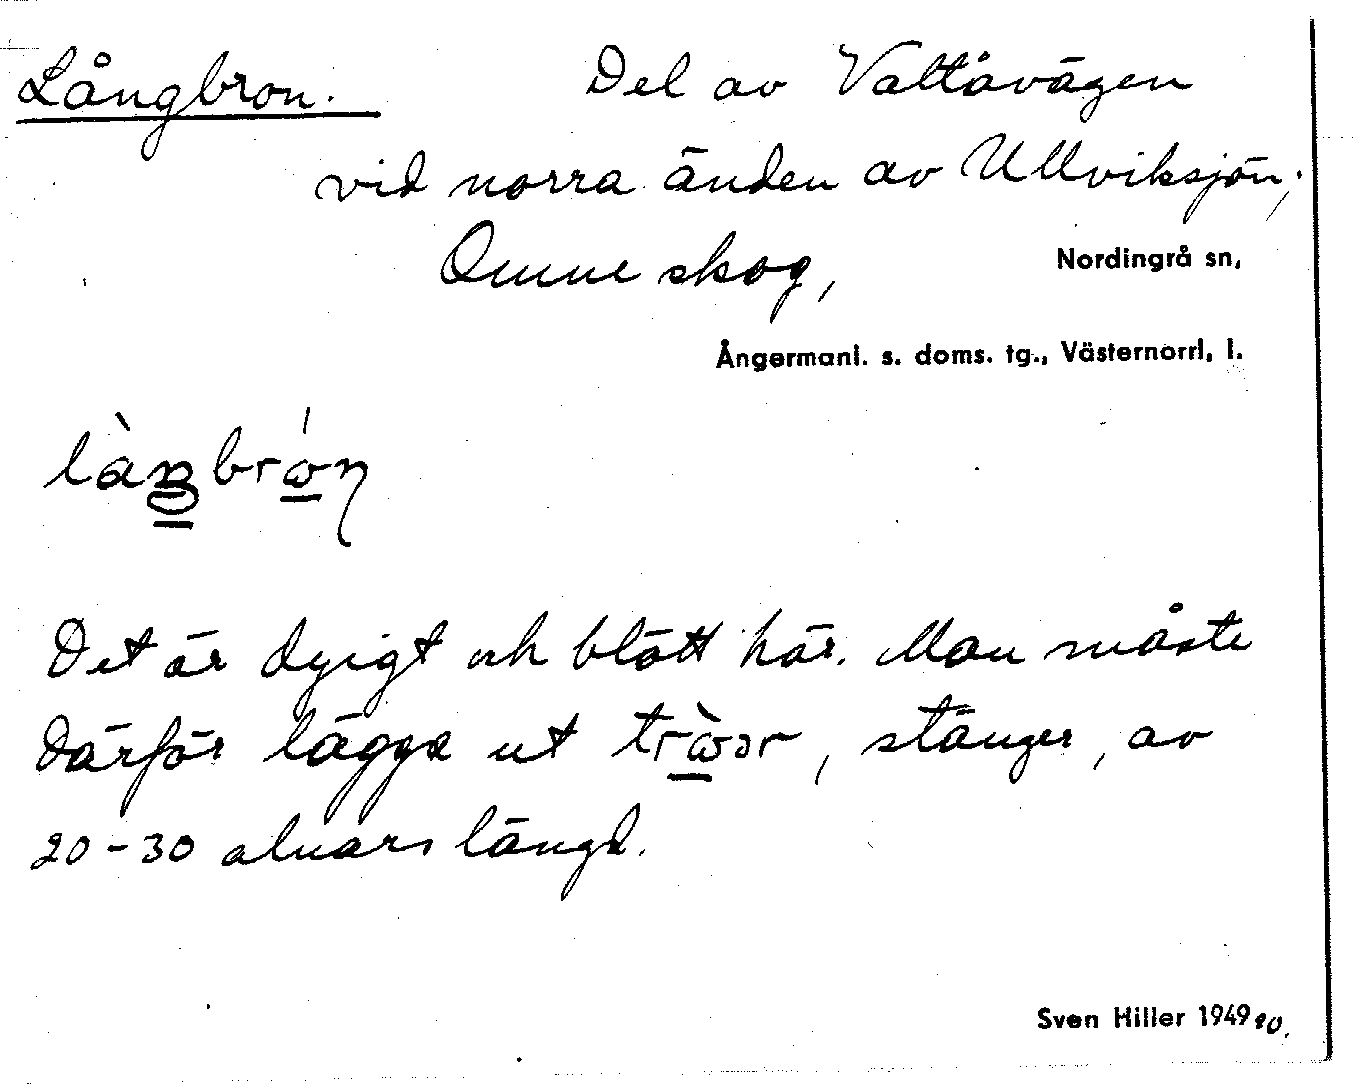 Långbron. Del av Valtåvägen
vid norra änden av Ullviksjön;
Omne skog, Nordingrå sn,
Ångermanl. s. doms. tg., Västernorrl. l.
Det är dyigt och blött här. Man måste
därför lägga ut stänger, av
20-30 alnars längd.
Sven Hiller 1949